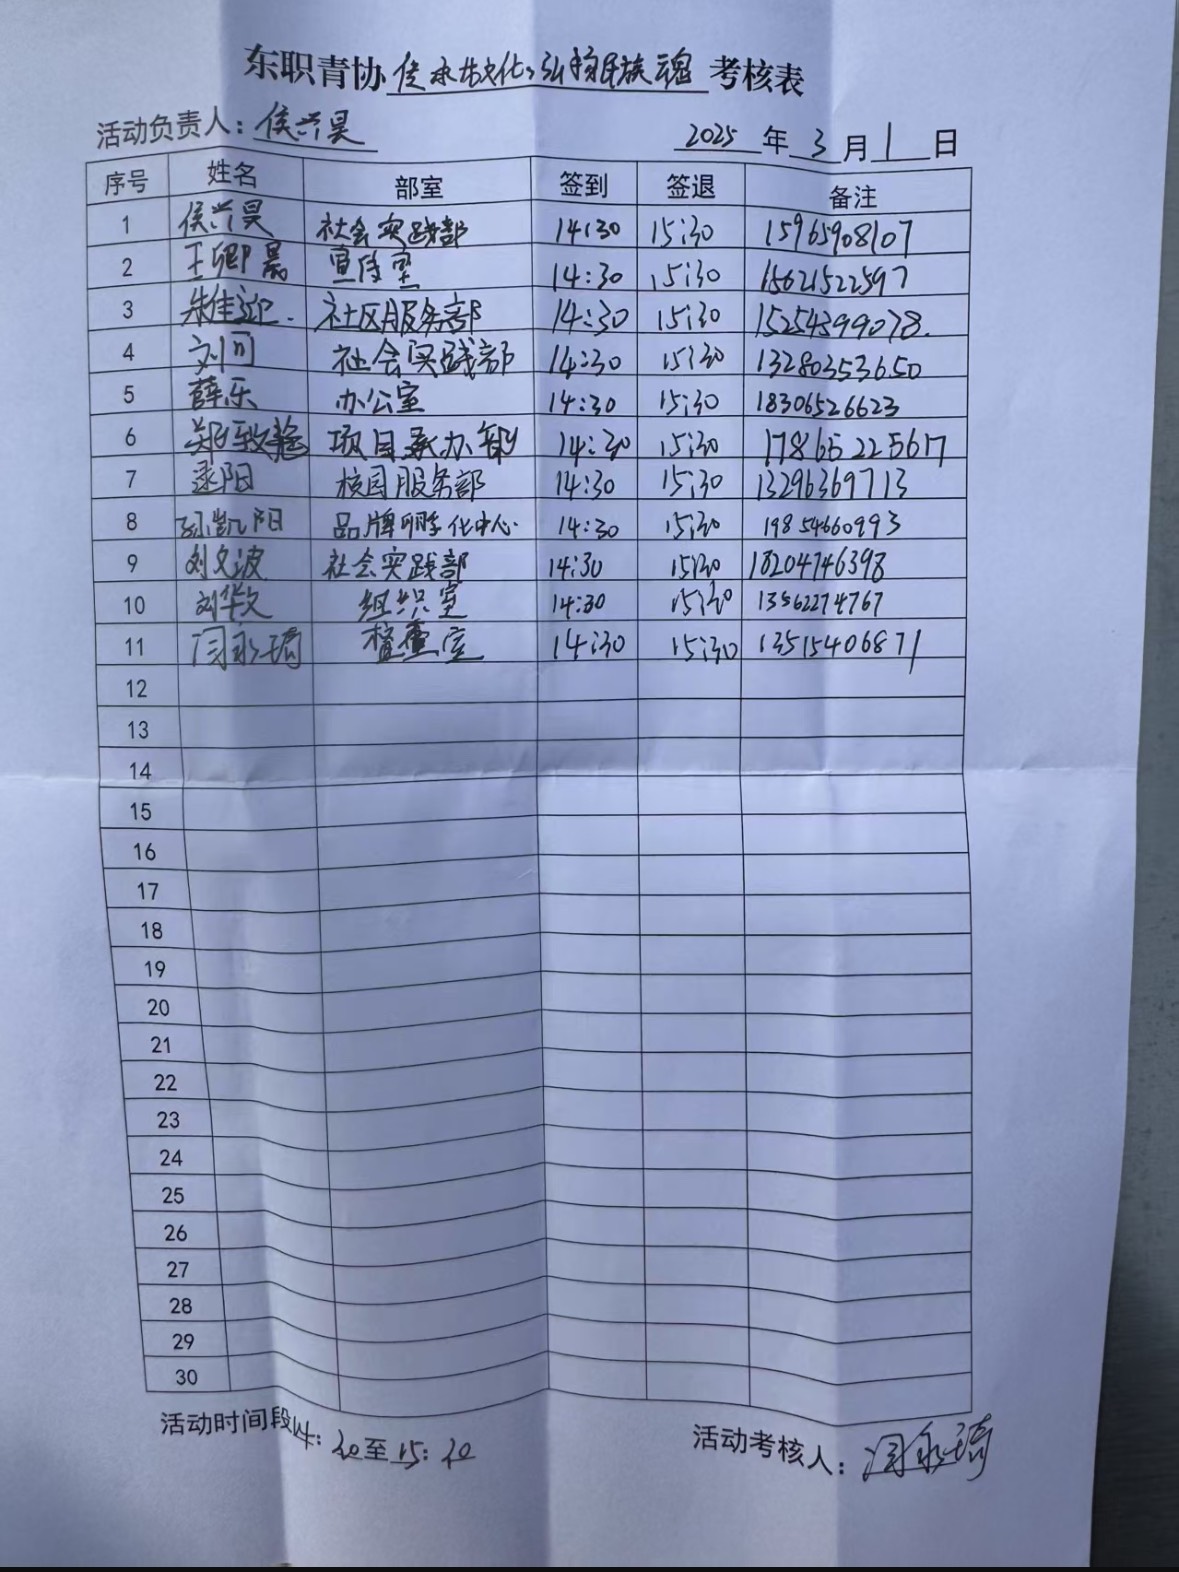 东职青协传承文化,弘扬民族魂考核表
活动负责人:侯兴昊 2025年3月1日
序号 姓名 部室 签到 签退 备注
1 侯兴昊 社会实践部 14:30 15:30 15965908107
2 王卿晨 宣传室 14:30 15:30 15621522597
3 朱佳迎. 社区服务部 14:30 15:30 15254399078.
4 刘可 社会实践部 14:30 15:30 13280353650
5 薛乐 办公室 14:30 15:30 18306526623
6 郑致 项目承办部 14:30 15:30 178665225617
7 阳 校园服务部 14:30 15:30 13296369713
8 孙凯阳 品牌孵化中心 14:30 15:30 19854660993
9 刘文波 社会实践部 14:30 15:30 18204746398
10 刘华文 组织室 14:30 15:30 13562274767
11 闫永琦 检查室 14:30 15:30 13515406871
12
13
14
15
16
17
18
19
20
21
22
23
24
25
26
27
28
29
30
活动时间段14:30至15:30 活动考核人:闫永琦